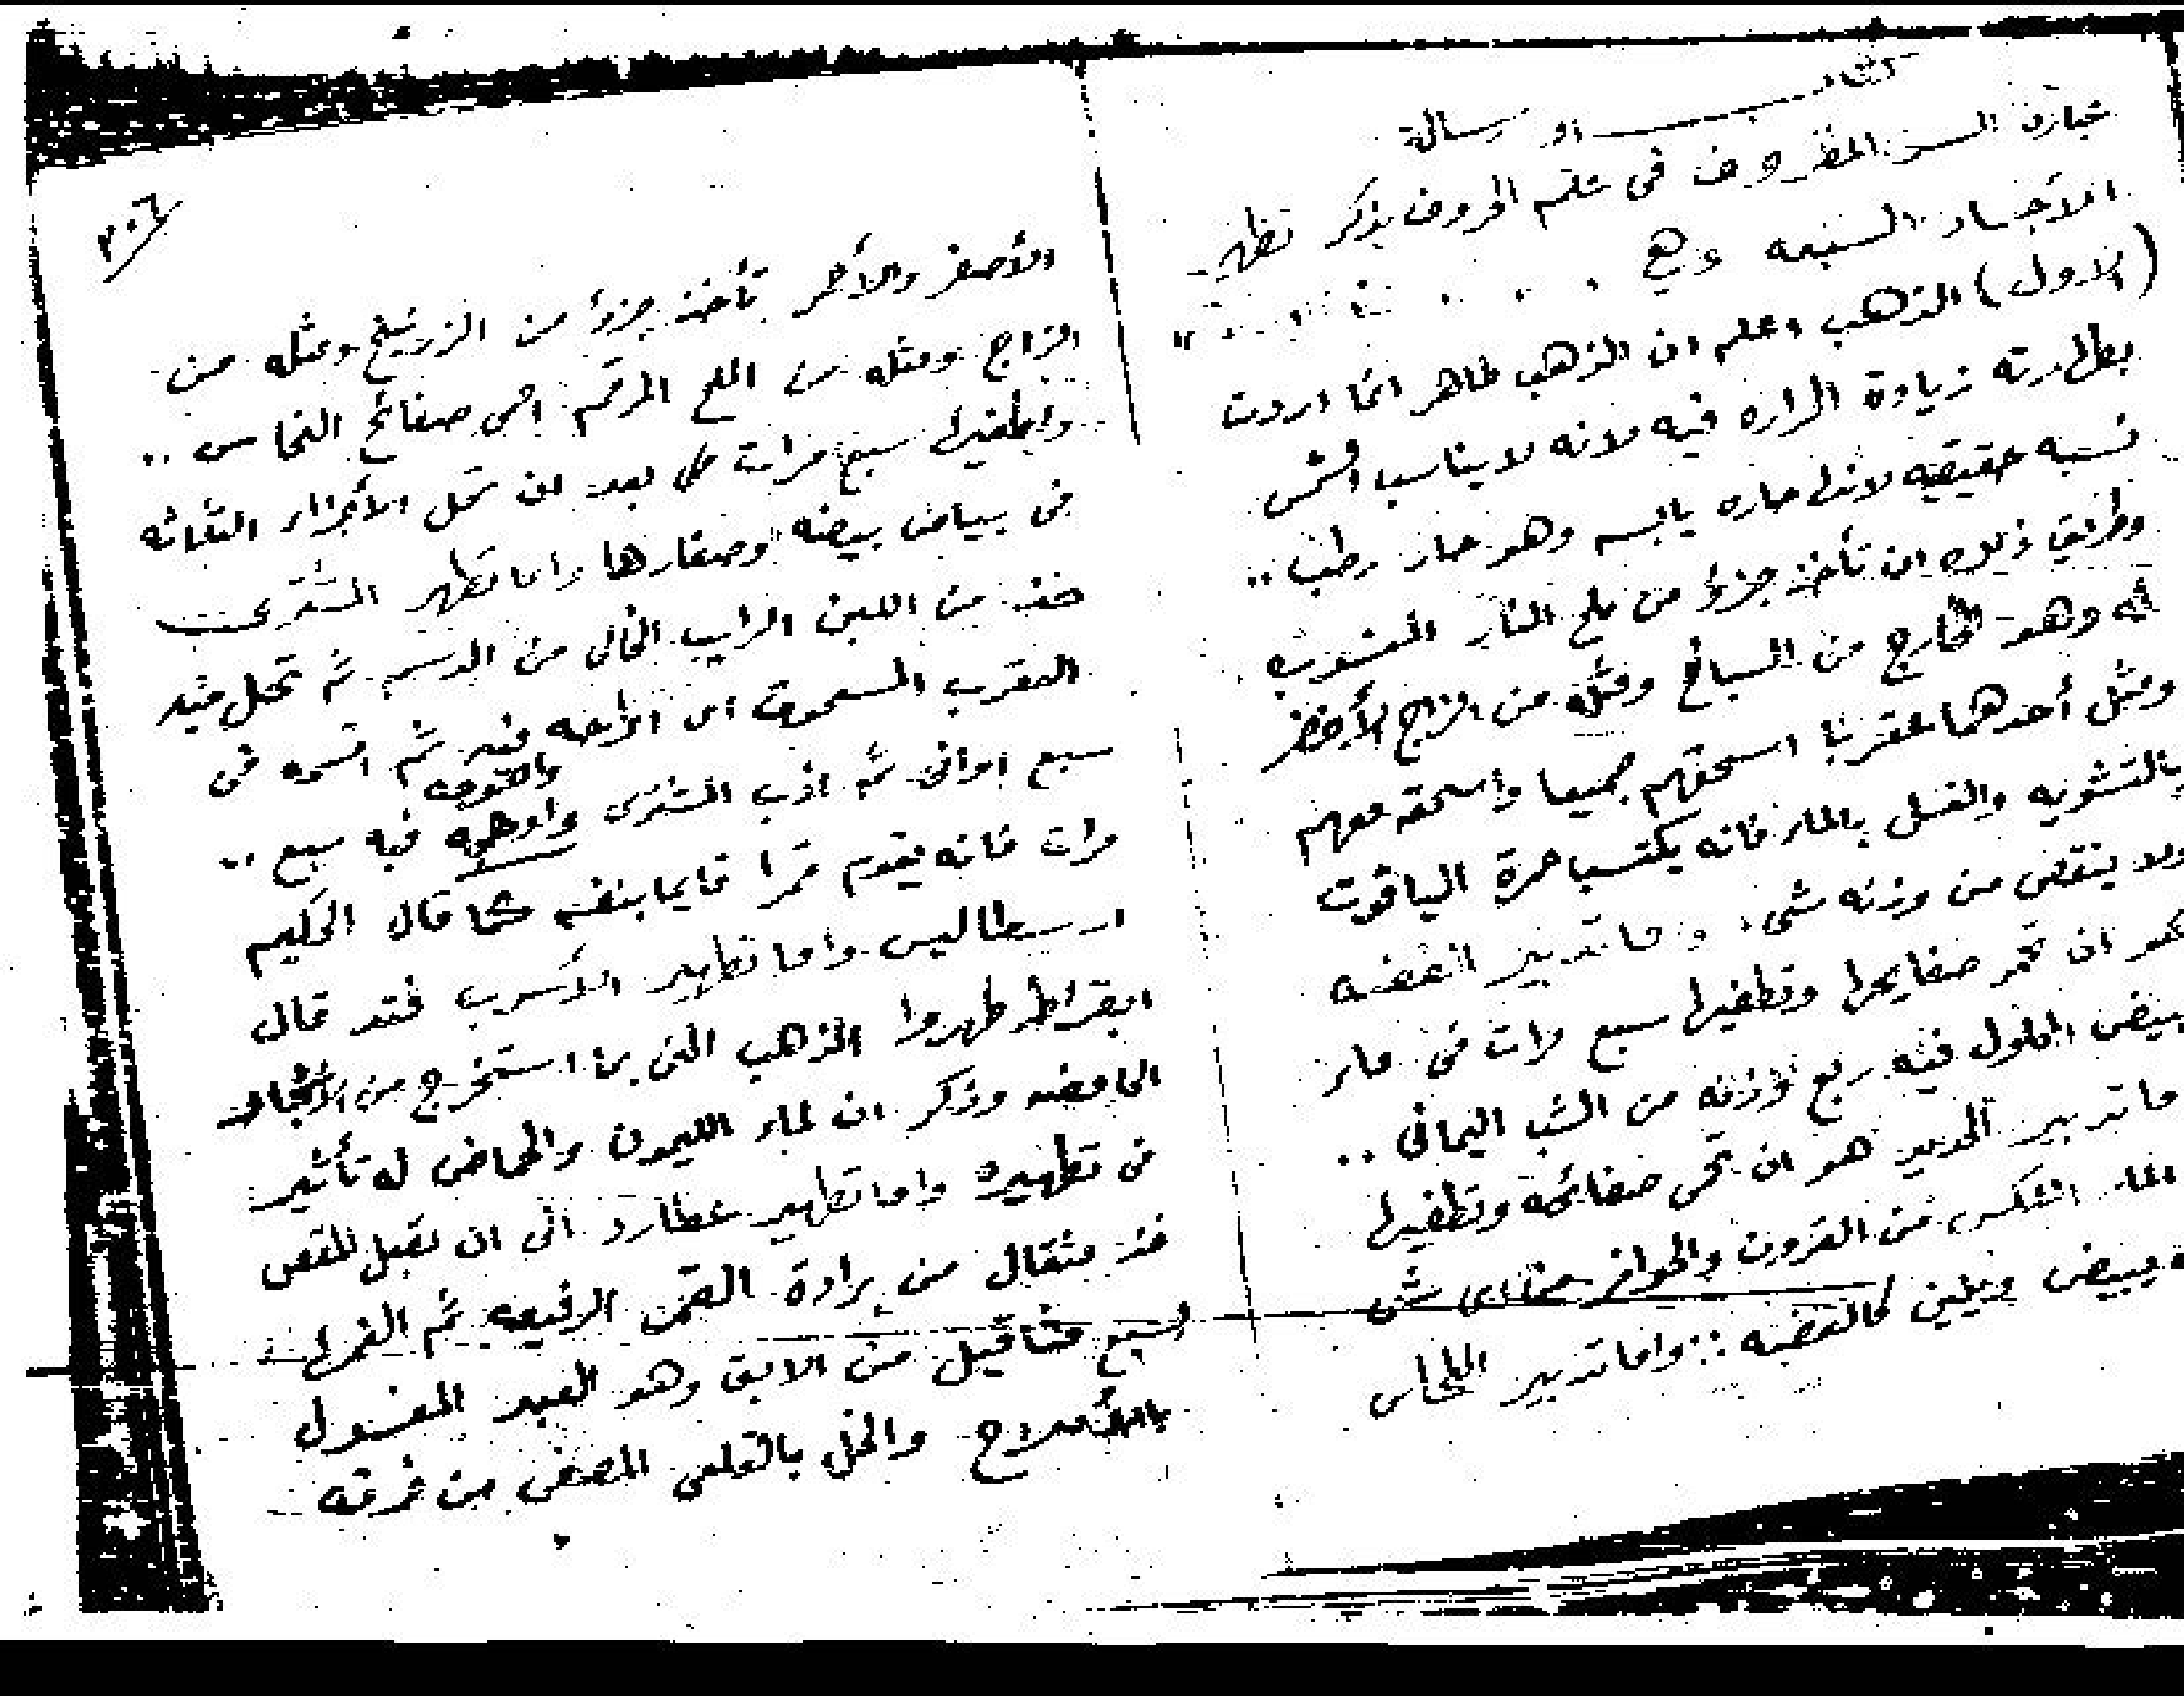 كتاب او رسالة
عبارة السر المظروف فى علم الحروف بذكر تطهير
الاجساد السبعه وهي
(الاول) الذهب اعلم ان الذهب طاهر انما اردت
بطهارته زيادة الحراره فيه لانه لا يناسب الشمس
نسبه حقيقيه لانها حاره يابسه وهو حار رطب ..
وطريق ذلك ان تأخذ جزؤا من ملح النار المنسوب
له وهو الخارج من السباخ ومثله من الزاج الأخضر
ومثل أحدهما عقربا اسحقهم جميعا واسحقه معهم
بالتشويه والغسل بالماء فانه يكتسب حمرة الياقوت
ولا ينقص من وزنه شىء واما تدبير الفضه
هو ان تحمر صفايحها وتطفيها سبع مرات فى ماء
بيض المحلول فيه ربع وزنه من الشب اليمانى ..
اما تدبير الحديد هو ان تحمى صفائحه وتطفيها
الماء من القرون والحوافر اى شى
يبيض ويلين كالفضه :: واما تدبير النحاس
٣٠٦
الأصفر والأحمر تأخذ جزؤا من الزرنيخ ومثله من
الزاج ومثله من الملح المر ثم احمى صفائح النحاس ..
واطفيها سبع مرات بعد ان تحل الأجزاء الثلاثه
فى بياض بيضه وصفارها واما تطهير المشترى
خذ من اللبن الرايب الخالى من الدسم ثم تحل فيه
العقرب المسحوق اى فيه ثم اقسمه فى
سبع اوانى ثم اذب المشترى فيه سبع ..
مرات فانه يقوم قمرا قايما بنفسه كما قال الحكيم
ارسطاليس واما تطهير الأسرب فقد قال
ابقراط طهروا الذهب النى بما استخرج من الأشجار
الحامضه وذكر ان لماء الليمون والحماض له تأثير
فى تطهيره واما تطهير عطارد الى ان يقبل
خذ مثقال من برادة القمر الرفيعه ثم الغمها
لسبع مثاقيل من الابق وهو العبد المغسول
بالأملاح والخل بالقلعى المصفى من خرقه